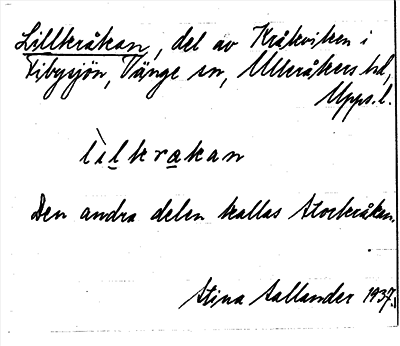 Lillkråkan, del av Kråkviken i
Fibysjön, Vänge sn, Ulleråkers hd,
Upps. l.
lìlkrakan
Den andra delen kallas Storkråkan.
Stina Sallander 1937.